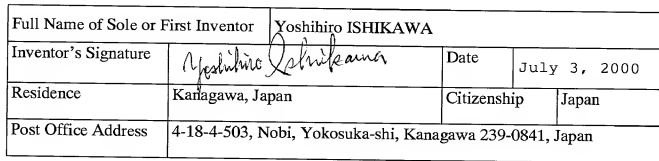 Full Name of Sole or First Inventor Yoshihiro ISHIKAWA
Inventor's Signature Yoshihiro Ishikawa Date July 3, 2000
Residence Kanagawa, Japan Citizenship Japan
Post Office Address 4-18-4-503, Nobi, Yokosuka-shi, Kanagawa 239-0841, Japan